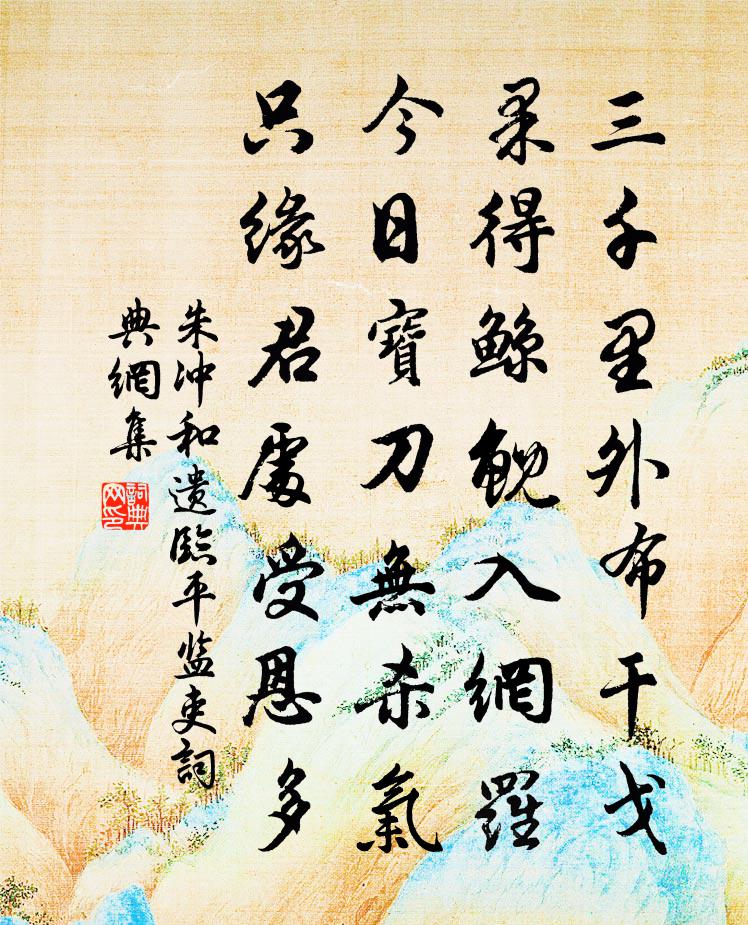 三千里外布干戈
果得鯨鯢入網羅
今日寶刀無杀氣
只緣君處受恩多
朱冲和遗臨平监吏詞
典網集
詞典网印